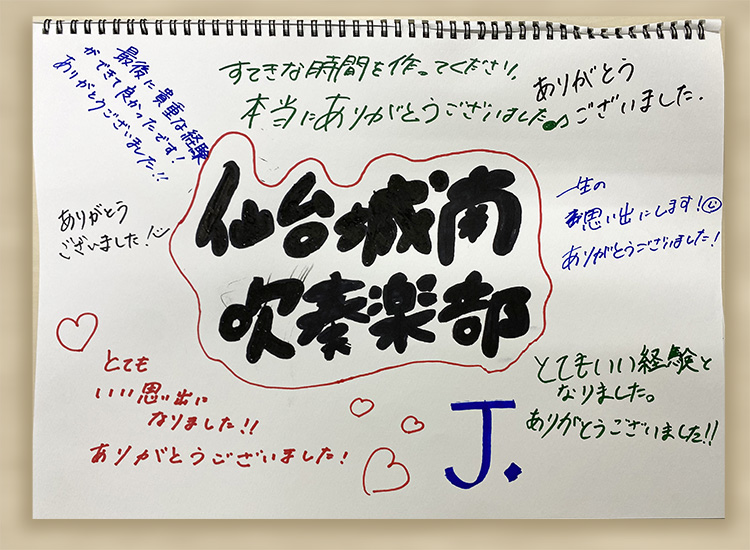 最後に貴重な経験
ができて良かったです!
ありがとうございました!!
すてきな時間を作ってくださり、
本当にありがとうございました♪
ありがとう
ございました.
仙台城南
吹奏楽部
ありがとう
ございました!
一生の
思い出にします!
ありがとうございました!
とても
いい思い出に
なりました!!
ありがとうございました!
とてもいい経験と
なりました。
ありがとうございました!!
J.